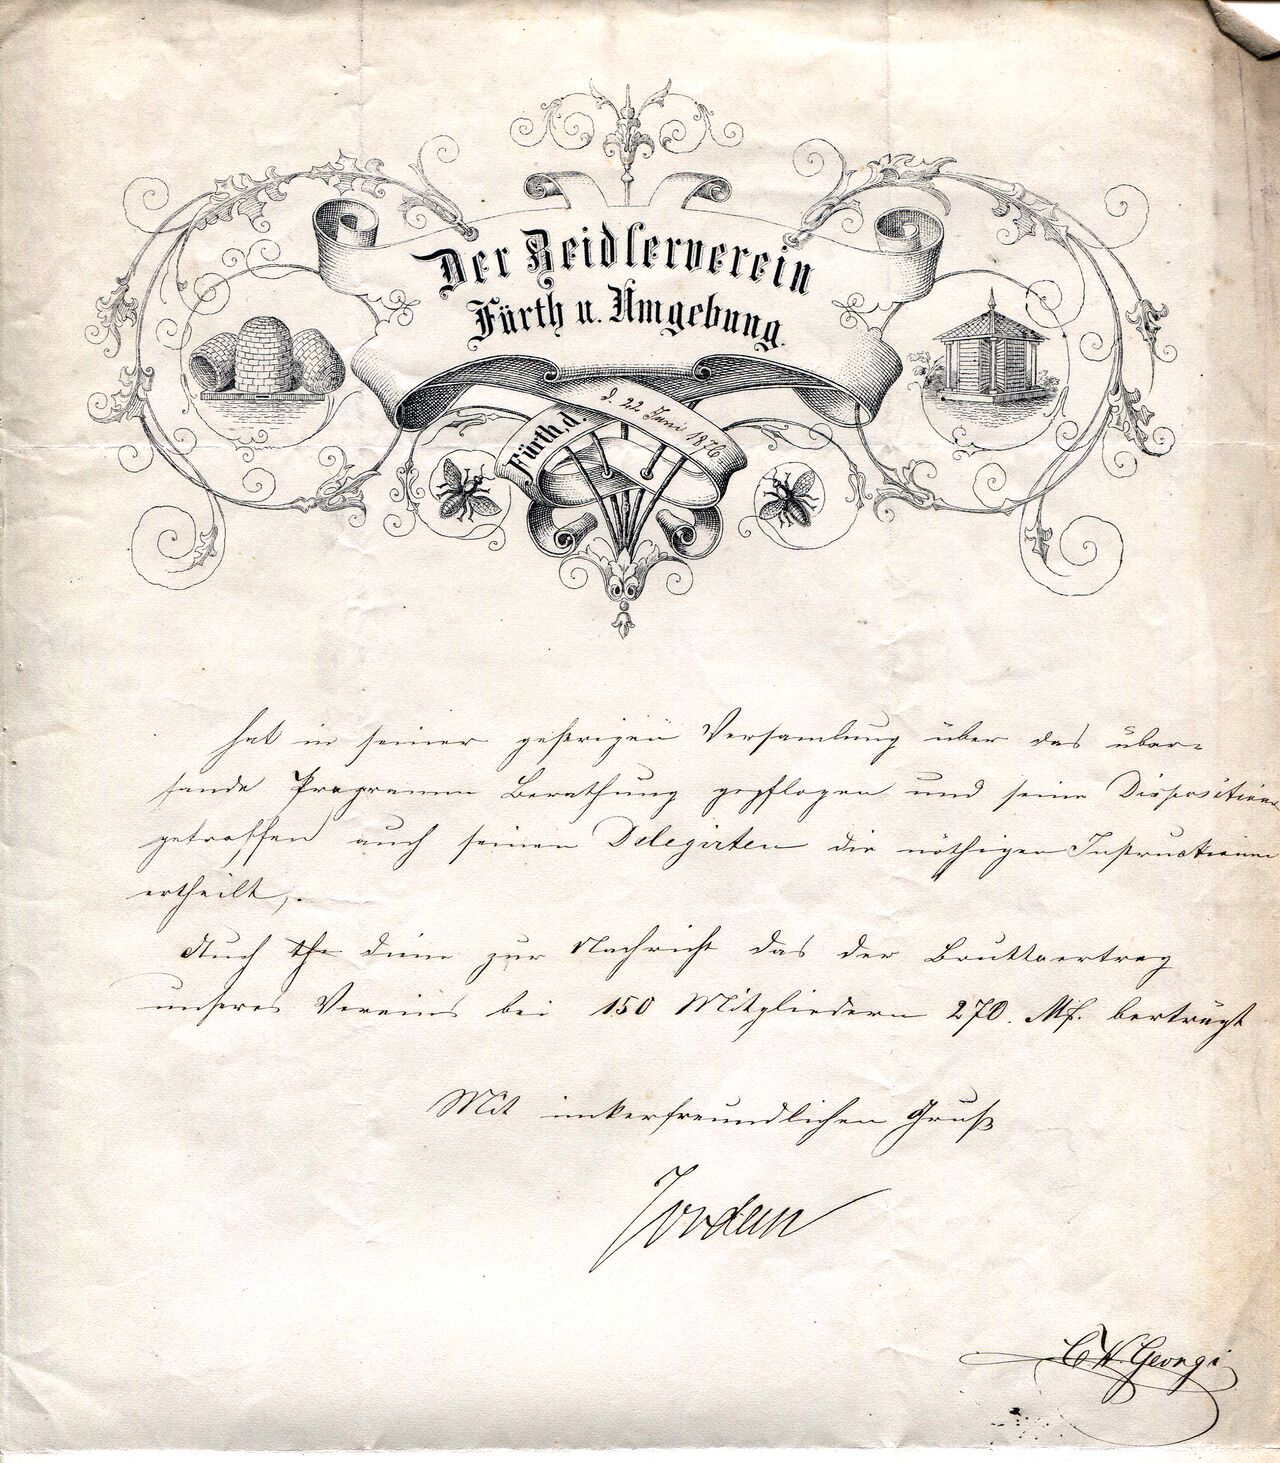 Der Zeidlerverein
Fürth u. Umgebung.
Fürth, d. d. 22. Juni 1876
hat in seiner gestrigen Versamlung über das über-
sande Programm Berathung gepflogen und seine Dispositionen
getroffen auch seinen Delegirten die nöthigen Instructionen
ertheilt,.
Auch diene zur Nachricht das der Bruttoertrag
unseres Vereins bei 150 Mitgliedern 270. Mk. berträgt
Mit imkerfreundlichen Gruß
Jordan
C W. Georgi